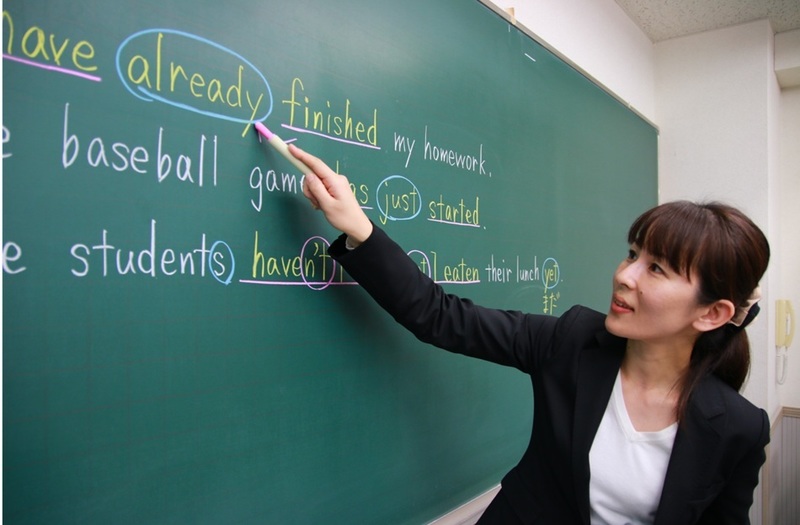 have already finished my homework.
baseball game has just started.
students haven't eaten their lunch yet.
まだ